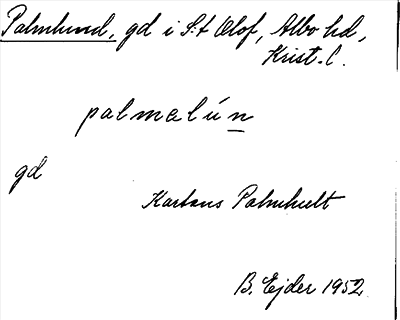 Palmlund, gd i S:t Olof, Albo hd,
Krist. l.
palmelún
gd
Kartans Palmhult
B. Ejder 1952